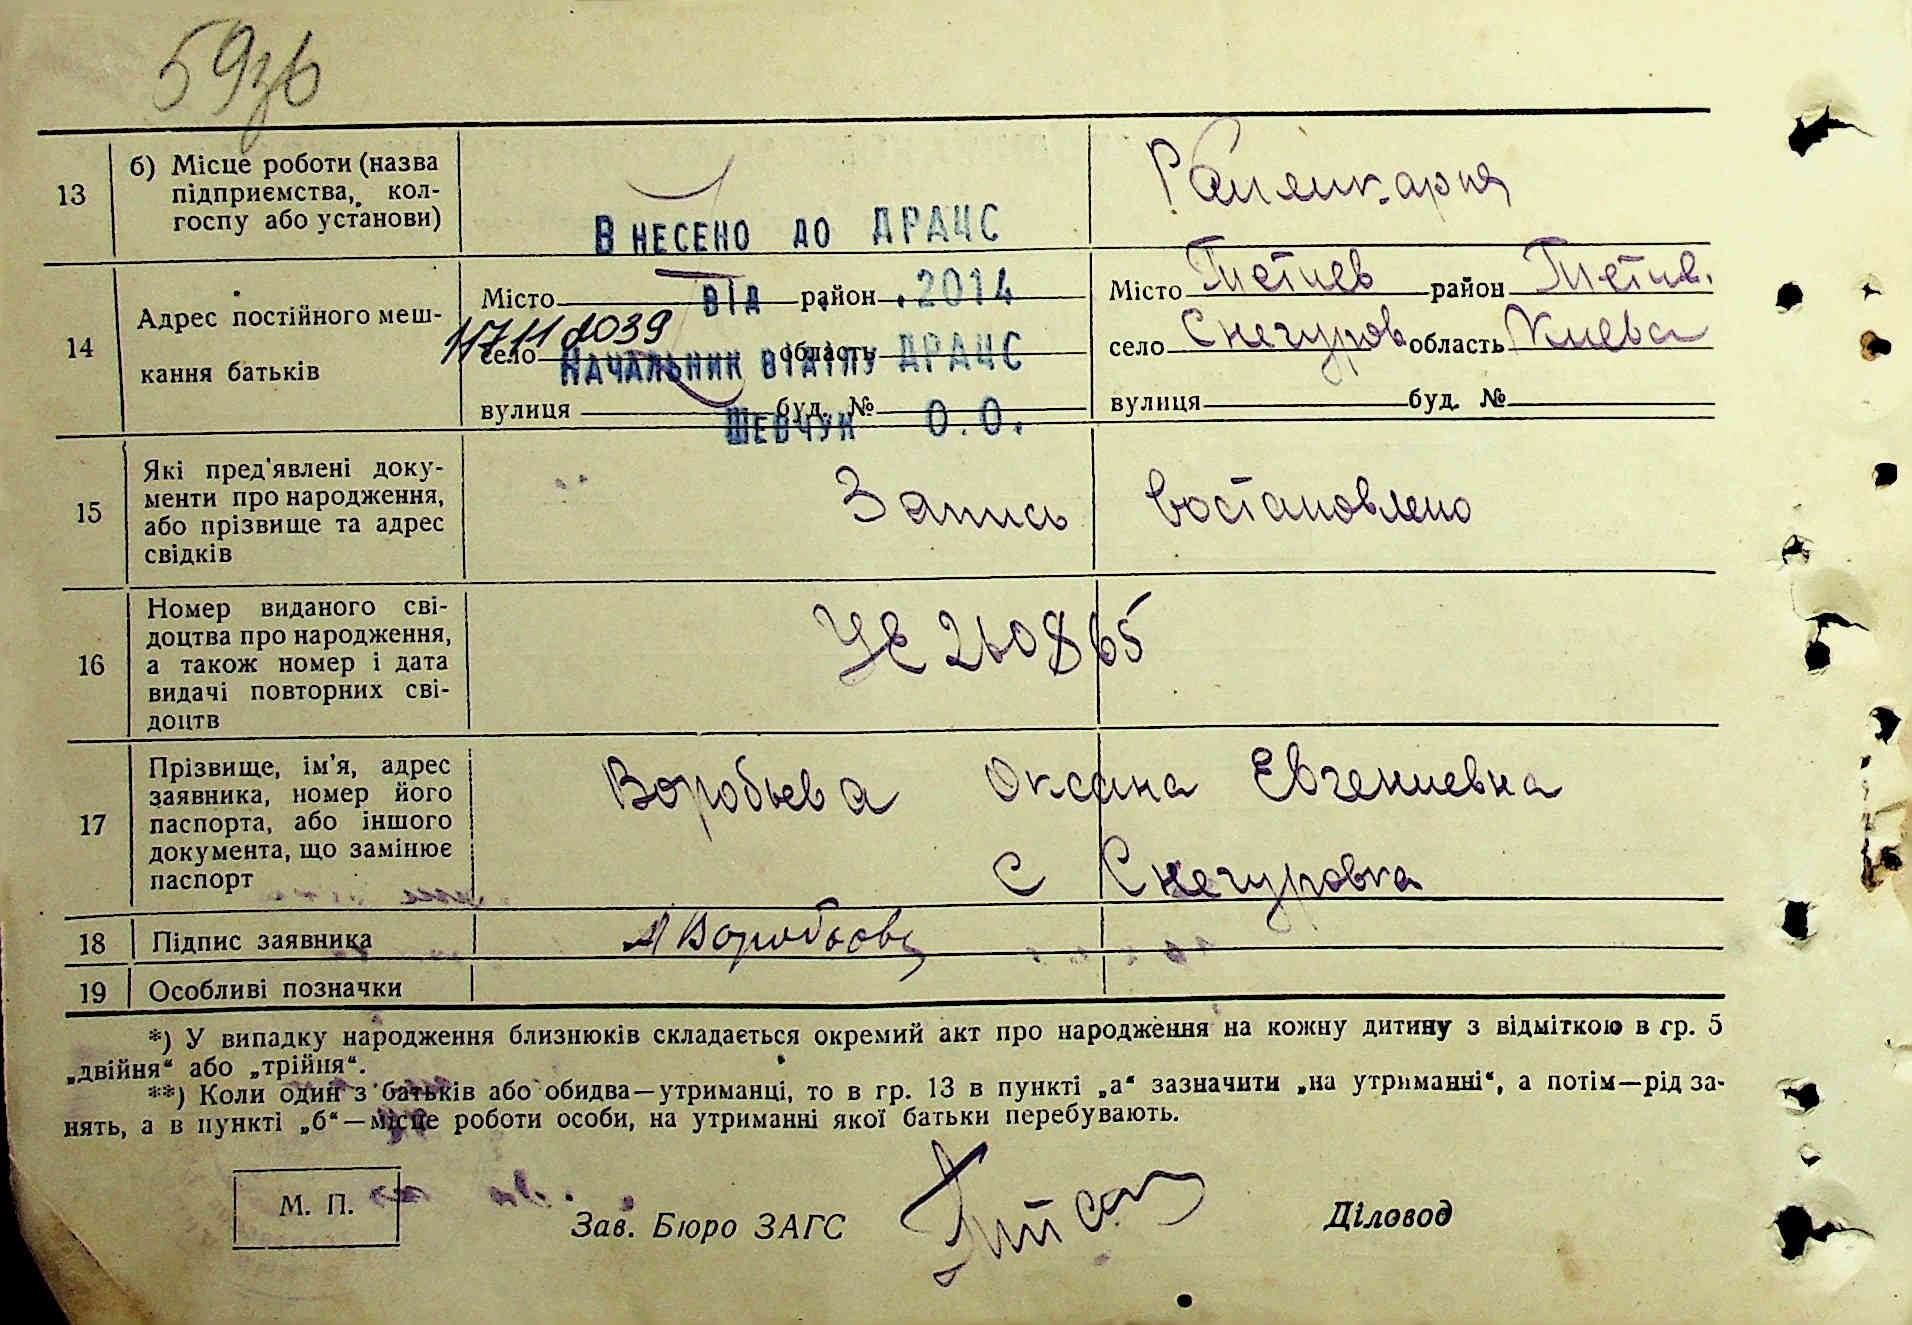 59зв
13
б) Місце роботи (назва
підприємства, кол-
госпу або установи)
ВНЕСЕНО ДО ДРАЦС
14
Адрес постійного меш-
кання батьків
Місто район
ВІД .2014
1711 2039
село область
НАЧАЛЬНИК ВІДІЛУ ДРАЦС
вулиця буд. №
ШЕВЧУК О.О.
Місто Тетиев район Тетив.
село Снегуров область Киева
вулиця буд. №
15
Які пред'явлені доку-
менти про народження,
або прізвище та адрес
свідків
Запись востановлено
16
Номер виданого сві-
доцтва про народження,
а також номер і дата
видачі повторних сві-
доцтв
УЕ 260865
17
Прізвище, ім'я, адрес
заявника, номер його
паспорта, або іншого
документа, що замінює
паспорт
Воробьева Оксана Евгениевна
С Снегуровка
18 Підпис заявника
19 Особливі позначки
*) У випадку народження близнюків складається окремий акт про народження на кожну дитину з відміткою в гр. 5
„двійня“ або „трійня“.
**) Коли один з батьків або обидва—утриманці, то в гр. 13 в пункті „а“ зазначити „на утриманні“, а потім—рід за-
нять, а в пункті „б“—місце роботи особи, на утриманні якої батьки перебувають.
М. П.
Зав. Бюро ЗАГС
Діловод